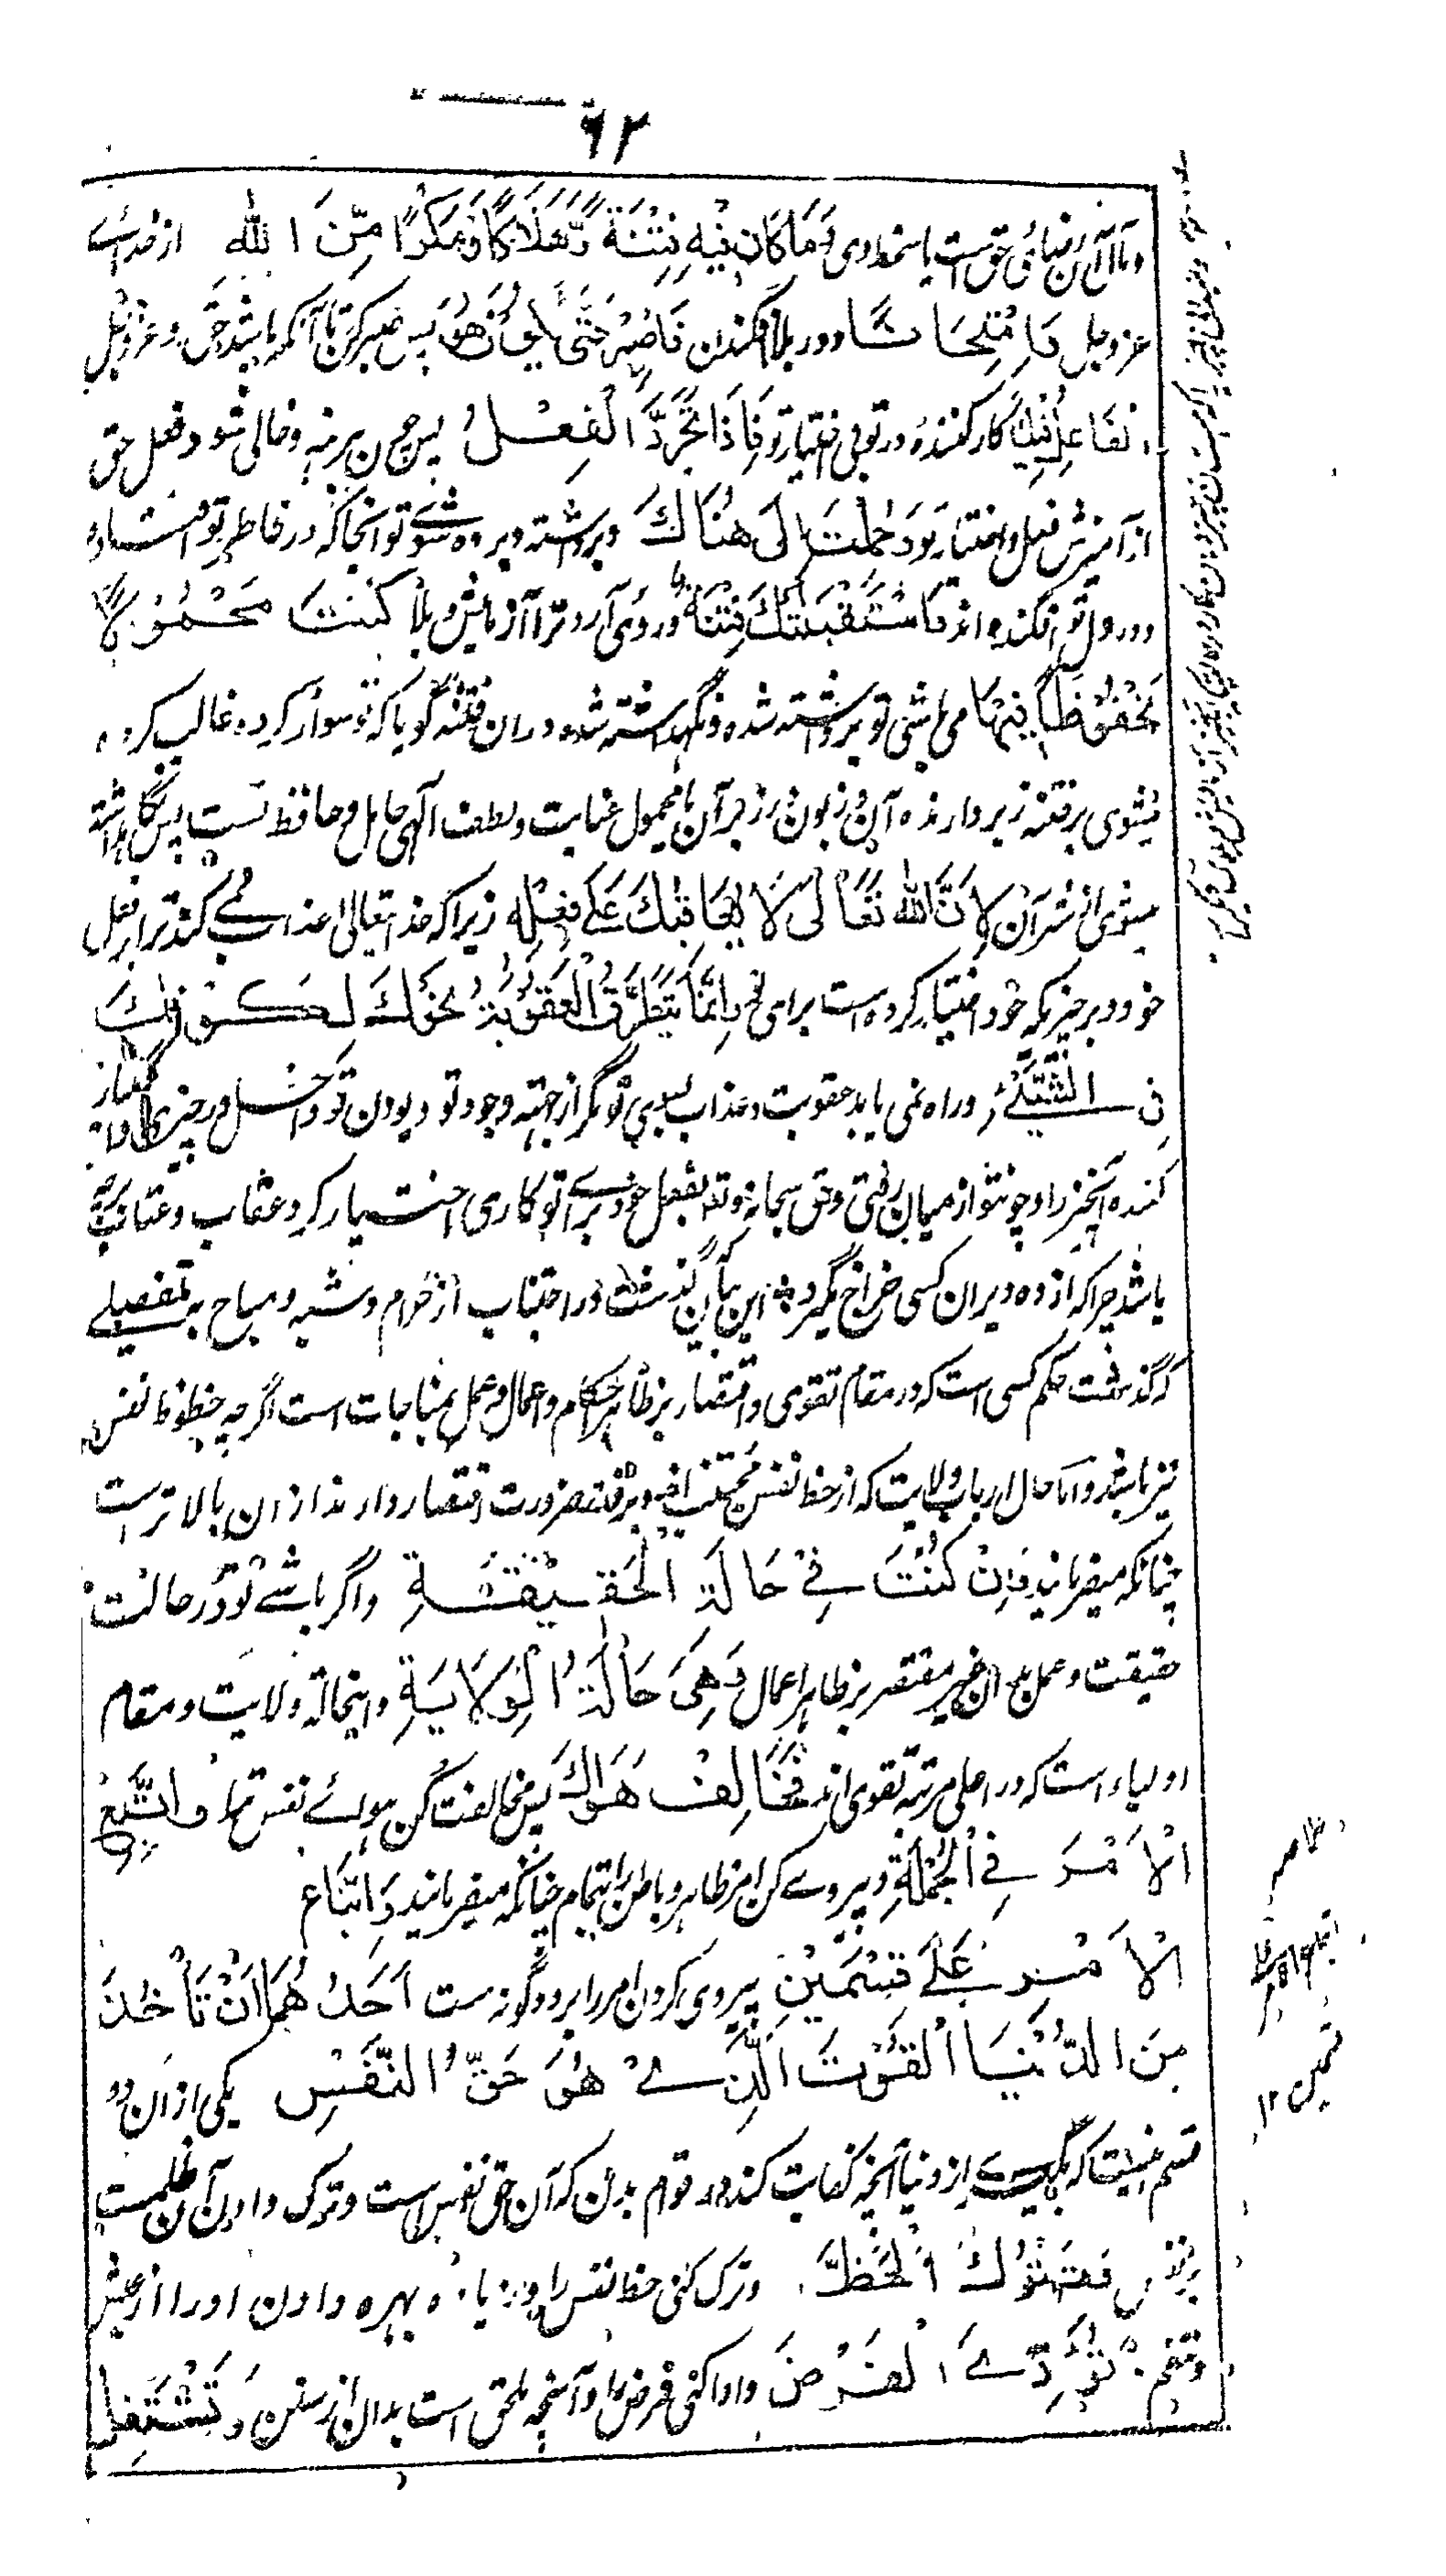 ٩٢
ومآل آن رضای حق است یا سخط وی وَمَا كَانَ فِيْهِ فِتْنَةً وَّهَلَاكًا وَّمَكْرًا مِّنَ الله از خداے
عز وجل وَامْتِحَانًا ودر بلا افگندن فَاصْبِرْ حَتّٰى يَكُوْنَ هُوَ پس صبر کن تا آنکه باشد حق عز وجل
الْفَاعِلَ فِيْكَ کار کننده در تو بی اختیار تو فَاِذَا تَجَرَّدَ الْفِعْلُ پس چون برهنه وخالی شود فعل حق
از آمیزش فعل واختیار تو وَحُمِلْتَ اِلٰى هُنَاكَ وبرداشته وبرده شوی تو آنجا که در خاطر تو افتاده
ودر دل تو افگنده اند فَاسْتَقْبَلَتْكَ فِتْنَةٌ وروی آرد ترا آزمایش وبلا كُنْتَ مَحْمُوْلًا
مَحْفُوْظًا فِيْهَا می باشی تو برداشته شده ونگهداشته شده دران فتنه گویا که تو سوار کرده غالب کرده
میشوی بر فتنه زیر دارنده آن وزبون زیر آن یا محمول عنایت ولطف الهی حامل وحافظ تست پس نگاهداشته
میشوی از شر آن لِاَنَّ اللّٰهَ تَعَالٰى لَا يُعَاقِبُكَ عَلٰى فِعْلِهٖ زیرا که خدایتعالی عذاب نمی کند ترا بر فعل
خود وبر چیزیکه خود اختیار کرده است برای تو وَاِنَّمَا يَتَطَرَّقُ الْعُقُوْبَةُ نَحْوَكَ لِكَوْنِكَ
فِى الشَّيْءِ وراه نمی یابد عقوبت وعذاب بسوی تو مگر از جهته وجود تو وبودن تو داخل در چیزی واختیار
کننده آنچیز را وچون تو از میان رفتی وحق سبحانه وتع بفعل خود برای تو کاری اختیار کرد عقاب وعتاب چه
باشد چرا که از ده ویران کسی خراج نگیرد این بیان گذشت در اجتناب از حرام وشبه ومباح به تفصیلے
که گذشت حکم کسی است که در مقام تقوی واقتصار بر ظاهر احکام واعمال وعمل بمباحات است اگرچه حظوظ نفس
نیز باشد واما حال ارباب ولایت که از حظ نفس مجتنب اند وبر قدر ضرورت اقتصار دارند از ان بالاتر است
چنانکه میفرمایند وَاِنْ كُنْتَ فِىْ حَالَةِ الْحَقِيْقَةِ واگر باشے تو در حالت
حقیقت وعمل بدان غیر مقتصر بر ظاهر اعمال وَهِىَ حَالَةُ الْوِلَايَةِ واینحالة ولایت ومقام
اولیاء است که در اعلی مرتبه تقوی اند فَخَالِفْ هَوَاكَ پس مخالفت کن هوائے نفس خود وَاتَّبِعْ
الْاَمْرَ فِى الْجُمْلَةِ وپیروے کن امر ظاهر وباطن را بتمام چنانکه میفرمایند وَاتِّبَاعُ
الْاَمْرِ عَلٰى قِسْمَيْنِ پیروی کردن امر را بر دو گونه ست اَحَدُهُمَا اَنْ تَأْخُذَ
مِنَ الدُّنْيَا الْقُوْتَ الَّذِىْ هُوَ حَقُّ النَّفْسِ یکی از ان دو
قسم اینست که بگیرے از دنیا آنچه کفایت کند در قوام بدن که آن حق نفس است وترک دادن آن ظلم است
بر نفس وَتَتْرُكَ الْحَظَّ وترک کنی حظ نفس را وزیاده بهره دادن اورا از عیش
وتنعم وَتُؤَدِّىَ الْفَرْضَ وادا کنی فرض را وآنچه ملحق است بدان از سنن وَتَشْتَغِلَ